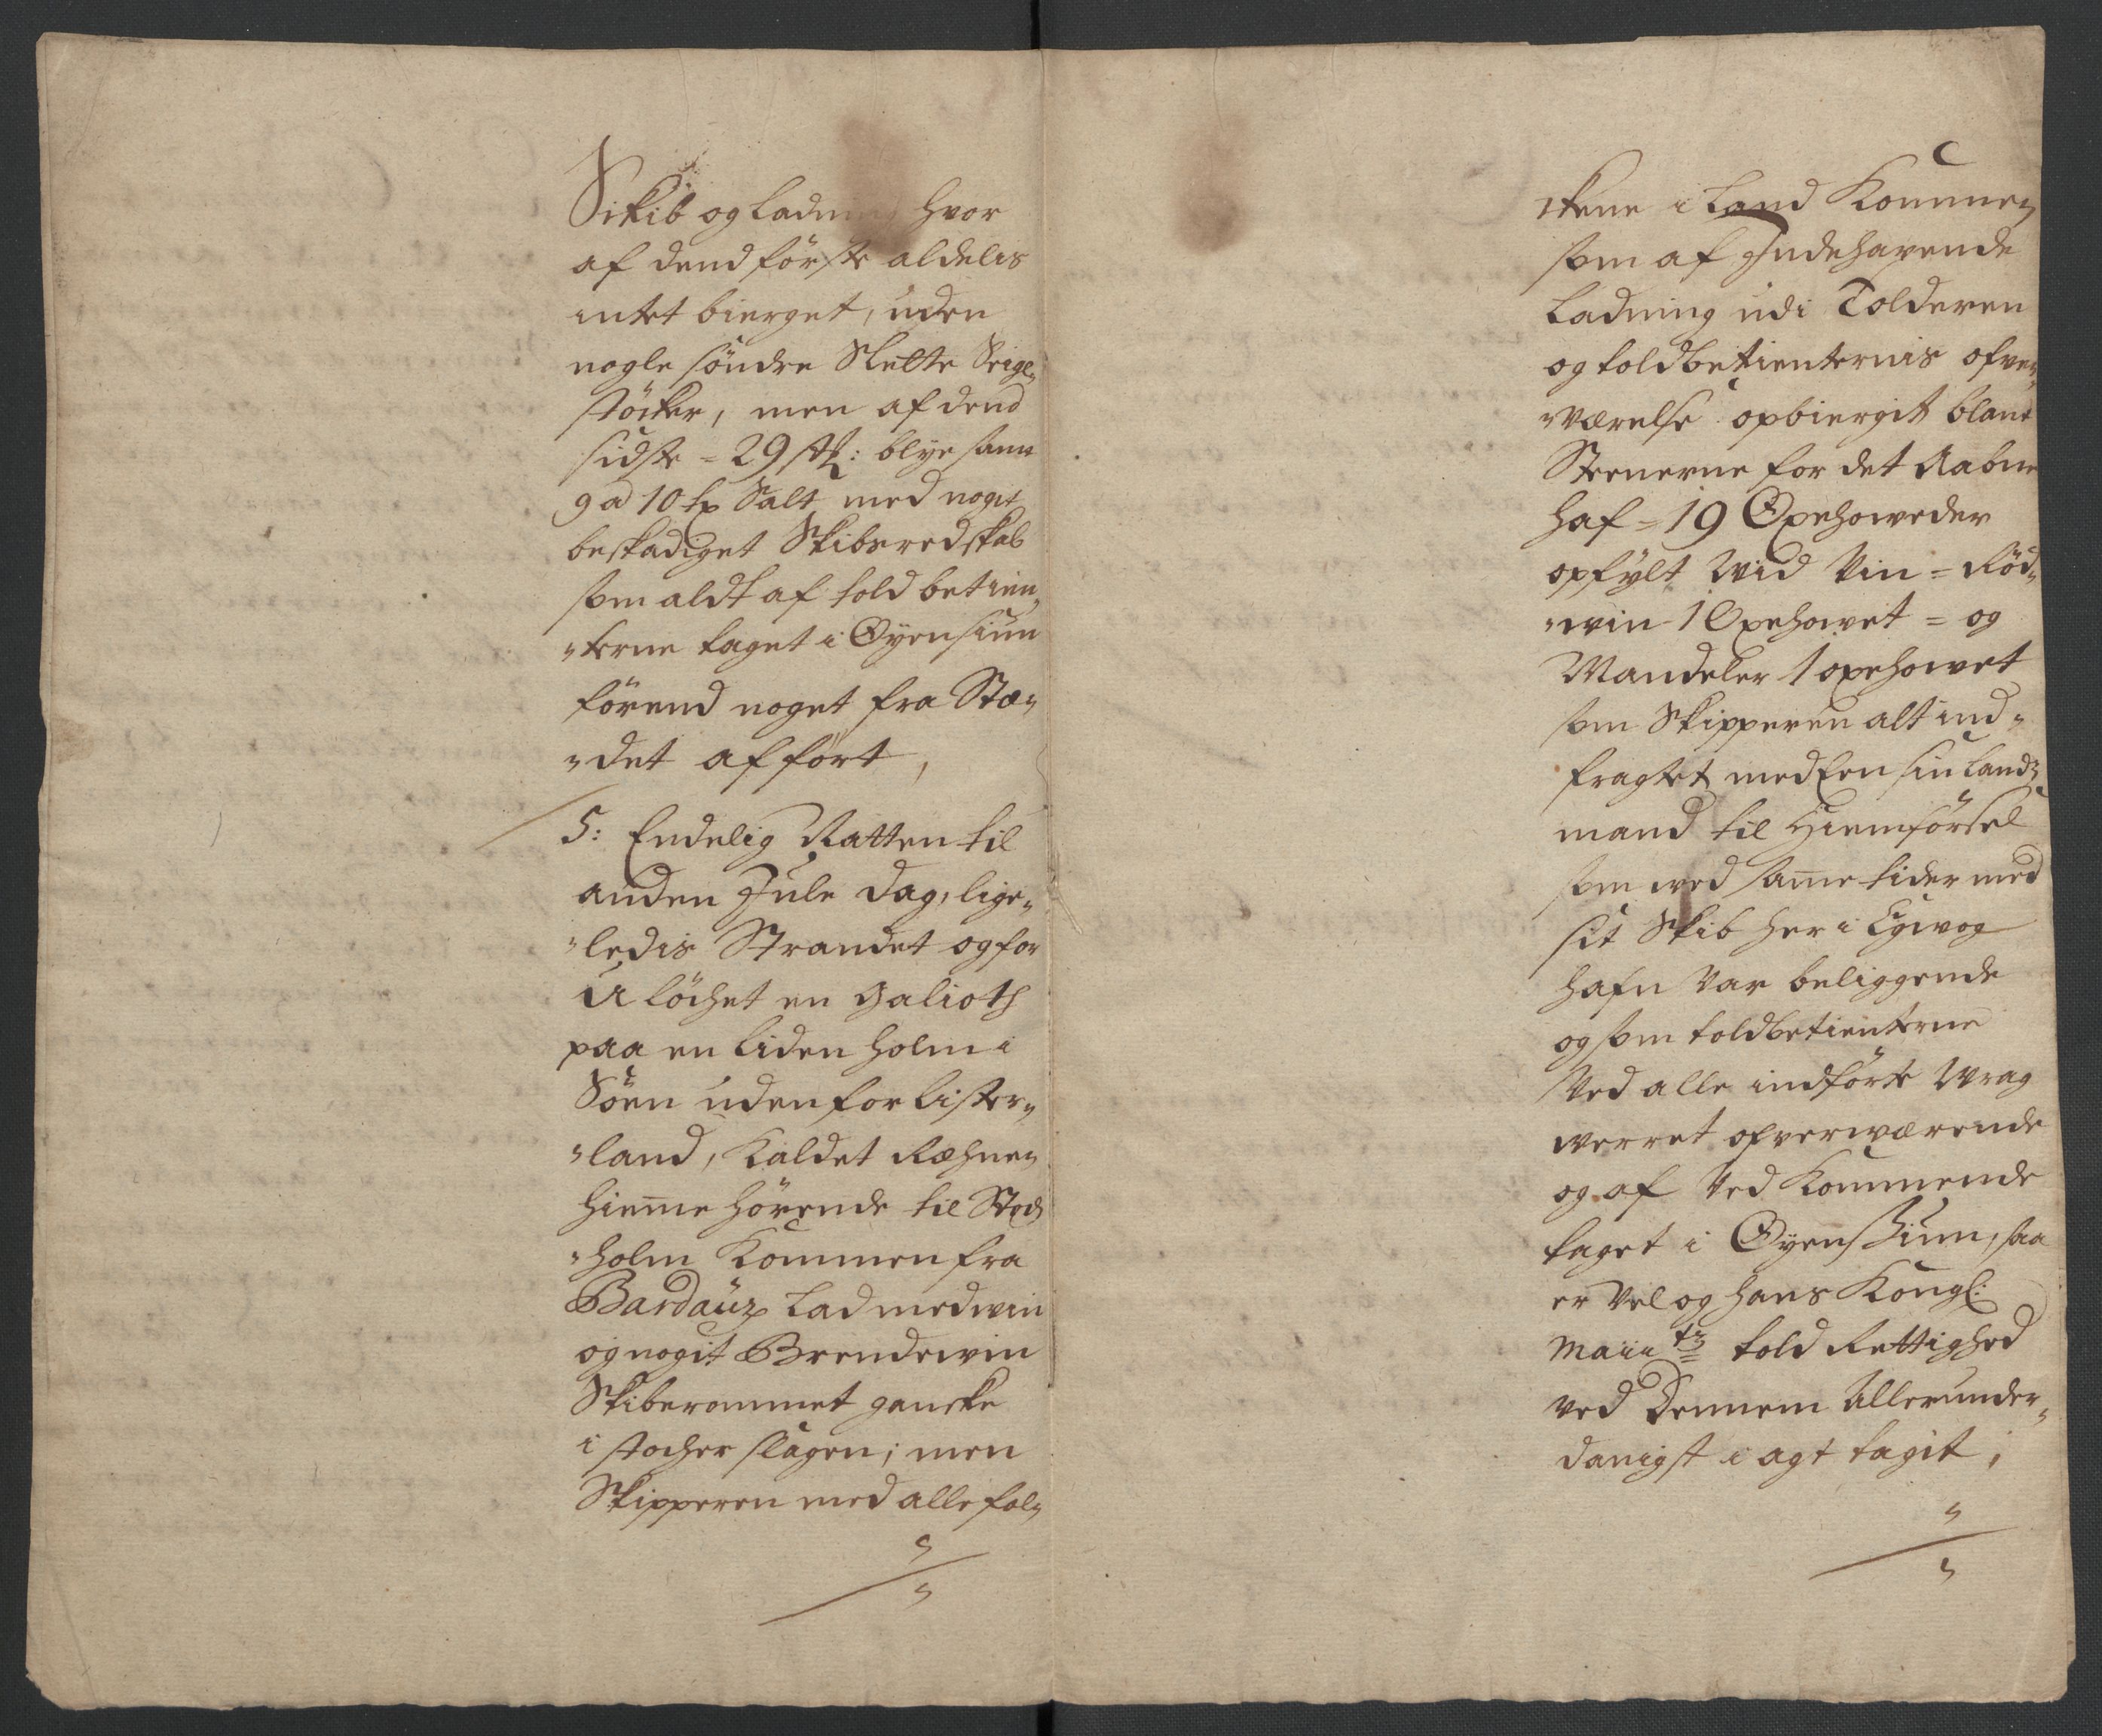 Skib og Ladning hvor
af dend förste aldelis
intet bierget, uden
nogle söndre Slette Seigel¬
stöcker, men af dend
sidste = 29 stk: blye samt
9 a 10 tr Salt med nogit
beskadiget Skibsredskab
som aldt af told betien¬
„terne taget i Øyensiun
förend noget fra Stæ„
„det afført,
5: Endelig Natten til
anden Jule dag, lige„
„ledis Strandet og for
U löchet en Galioth
paa en liden holm i
Söen uden for Lister„
„land, kaldet Ræhne„
hieme hörende til Stoch
„holm kommen fra
Bardaux Lad med win
og nogit Brendewin
Skiberommet ganske
i stocher slagen; men
Skipperen med alle fol„
kene i Land kommen
som af Indehavende
Ladning udi Tolderen
og toldbetienternis ofver„
„værelse opbiergit blant
Steenerne for det Aabne
haf = 19 Oxehoweder
opfylt Wid Vin = Röd„
„win 1 Oxehowet = og
Mandeler 1 oxehowet
som Skipperen alt ind„
fragtet med Een sin Lands
mand til Hiemförsel
som wed same tider med
sit Skib her i Egwog
hafn Var beliggende
og som toldbetienterne
Ved alle indförte Wrag
werret ofverwærende
og af Ved Kommende
taget i Øyensiun, saa
er Vel og hans Kongl:
Maiits told Rettighed
ved Dennem Allerunder„
danigst i agt tagit;